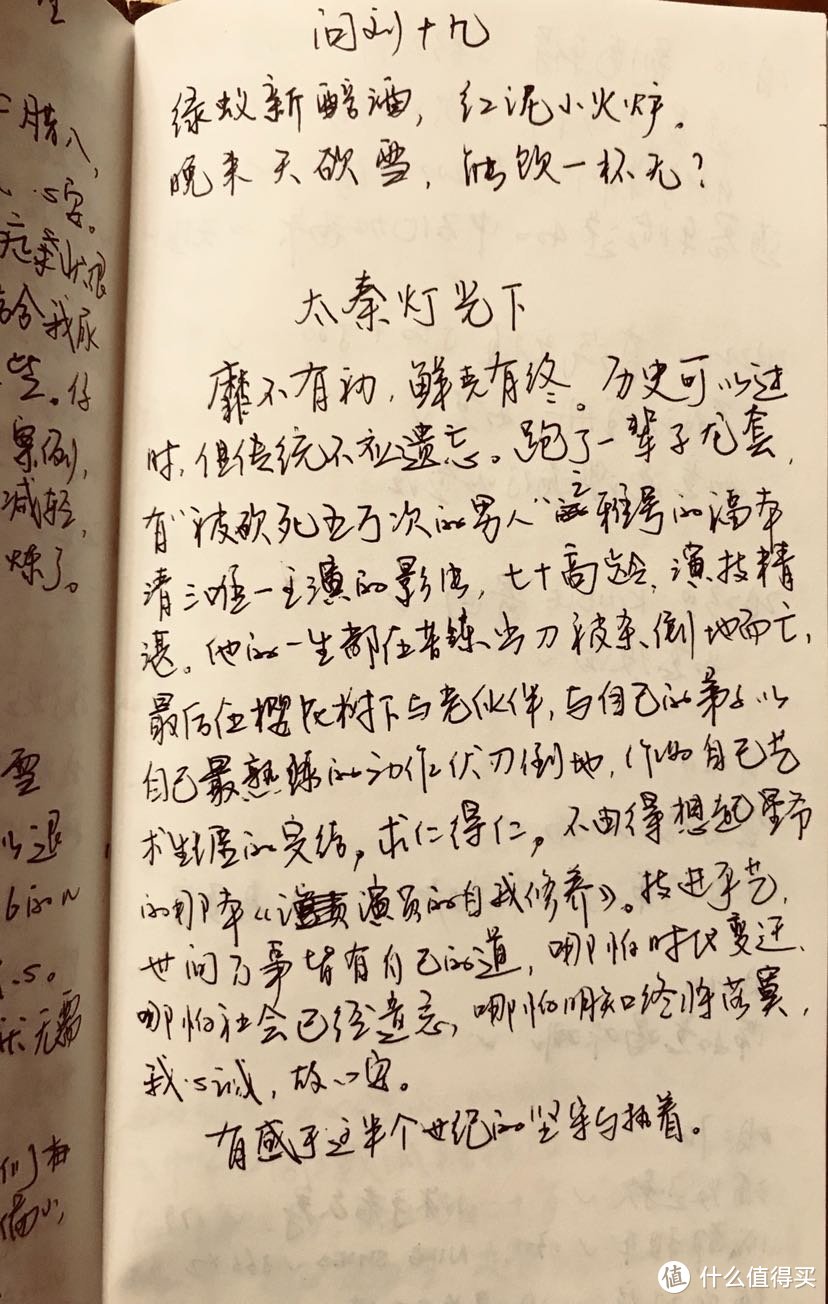 腊八，
心安。
我尿
仔
案例，
减轻，
炼了。
雪
以退
无需
们有
问刘十九
绿蚁新醅酒，红泥小火炉。
晚来天欲雪，能饮一杯无？
太秦灯光下
靡不有初，鲜克有终。历史可以过
时，但传统不应遗忘。跑了一辈子龙套，
有“被砍死五万次的男人”之雅号的福本
清三唯一主演的影片，七十高龄，演技精
湛。他的一生都在苦练出刀被杀、倒地而亡，
最后在樱花树下与老伙伴，与自己的弟子以
自己最熟练的动作伏刃倒地，作为自己艺
术生涯的完结，求仁得仁。不由得想起星爷
的那本《演员的自我修养》。技进乎艺，
世间万事皆有自己的道，哪怕时代变迁、
哪怕社会已经遗忘，哪怕明知终将落寞，
我心诚，故心安。
有感于这半个世纪的坚守与执着。
值 什么值得买